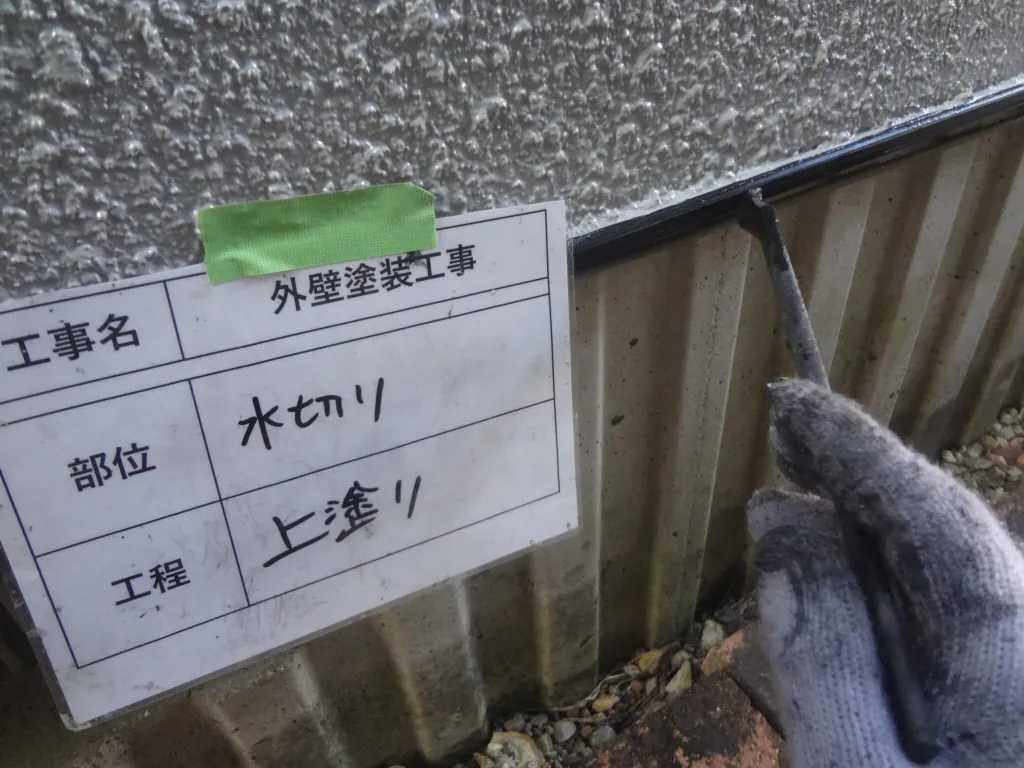 工事名 外壁塗装工事
部位 水切り
工程 上塗り